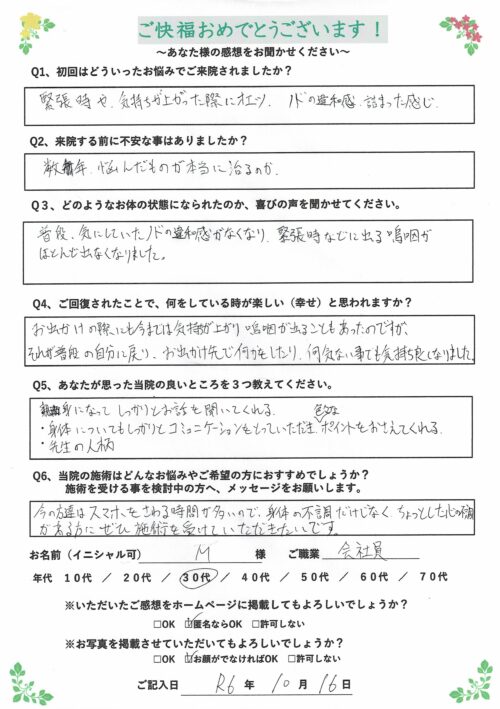 ご快福おめでとうございます！
～あなた様の感想をお聞かせください～
Q1、初回はどういったお悩みでご来院されましたか？
緊張時や、気持ちが上がった際にオエツ。ノドの違和感、詰まった感じ
Q2、来院する前に不安な事はありましたか？
数年、悩んだものが本当に治るのか、
Q３、どのようなお体の状態になられたのか、喜びの声を聞かせてください。
普段、気にしていたノドの違和感がなくなり、緊張時などに出る嗚咽が
ほとんど出なくなりました。
Q4、ご回復されたことで、何をしている時が楽しい（幸せ）と思われますか？
お出かけの際にも今までは気持が上がり嗚咽が出ることもあったのですが、
それが普段の自分に戻り、お出かけ先で何かをしたり、何気ない事でも気持ち良くなりました。
Q5、あなたが思った当院の良いところを３つ教えてください。
親身になってしっかりとお話を聞いてくれる。
・身体についてもしっかりとコミュニケーションをとっていただき、色々なポイントをおさえてくれる。
・先生の人柄
Q6、当院の施術はどんなお悩みやご希望の方におすすめでしょうか？
施術を受ける事を検討中の方へ、メッセージをお願いします。
今の方達はスマホをさわる時間が多いので、身体の不調だけじゃなく、ちょっとした心の
がある方にぜひ施術を受けていただきたいです。
お名前（イニシャル可） M 様 ご職業 会社員
年代 １０代 ／ ２０代 ／ ３０代 ／ ４０代 ／ ５０代 ／ ６０代 ／ ７０代
※いただいたご感想をホームページに掲載してもよろしいでしょうか？
□OK ☑匿名ならOK □許可しない
※お写真を掲載させていただいてもよろしいでしょうか？
□OK ☑お顔がでなければOK □許可しない
ご記入日 R6 年 10 月 16 日